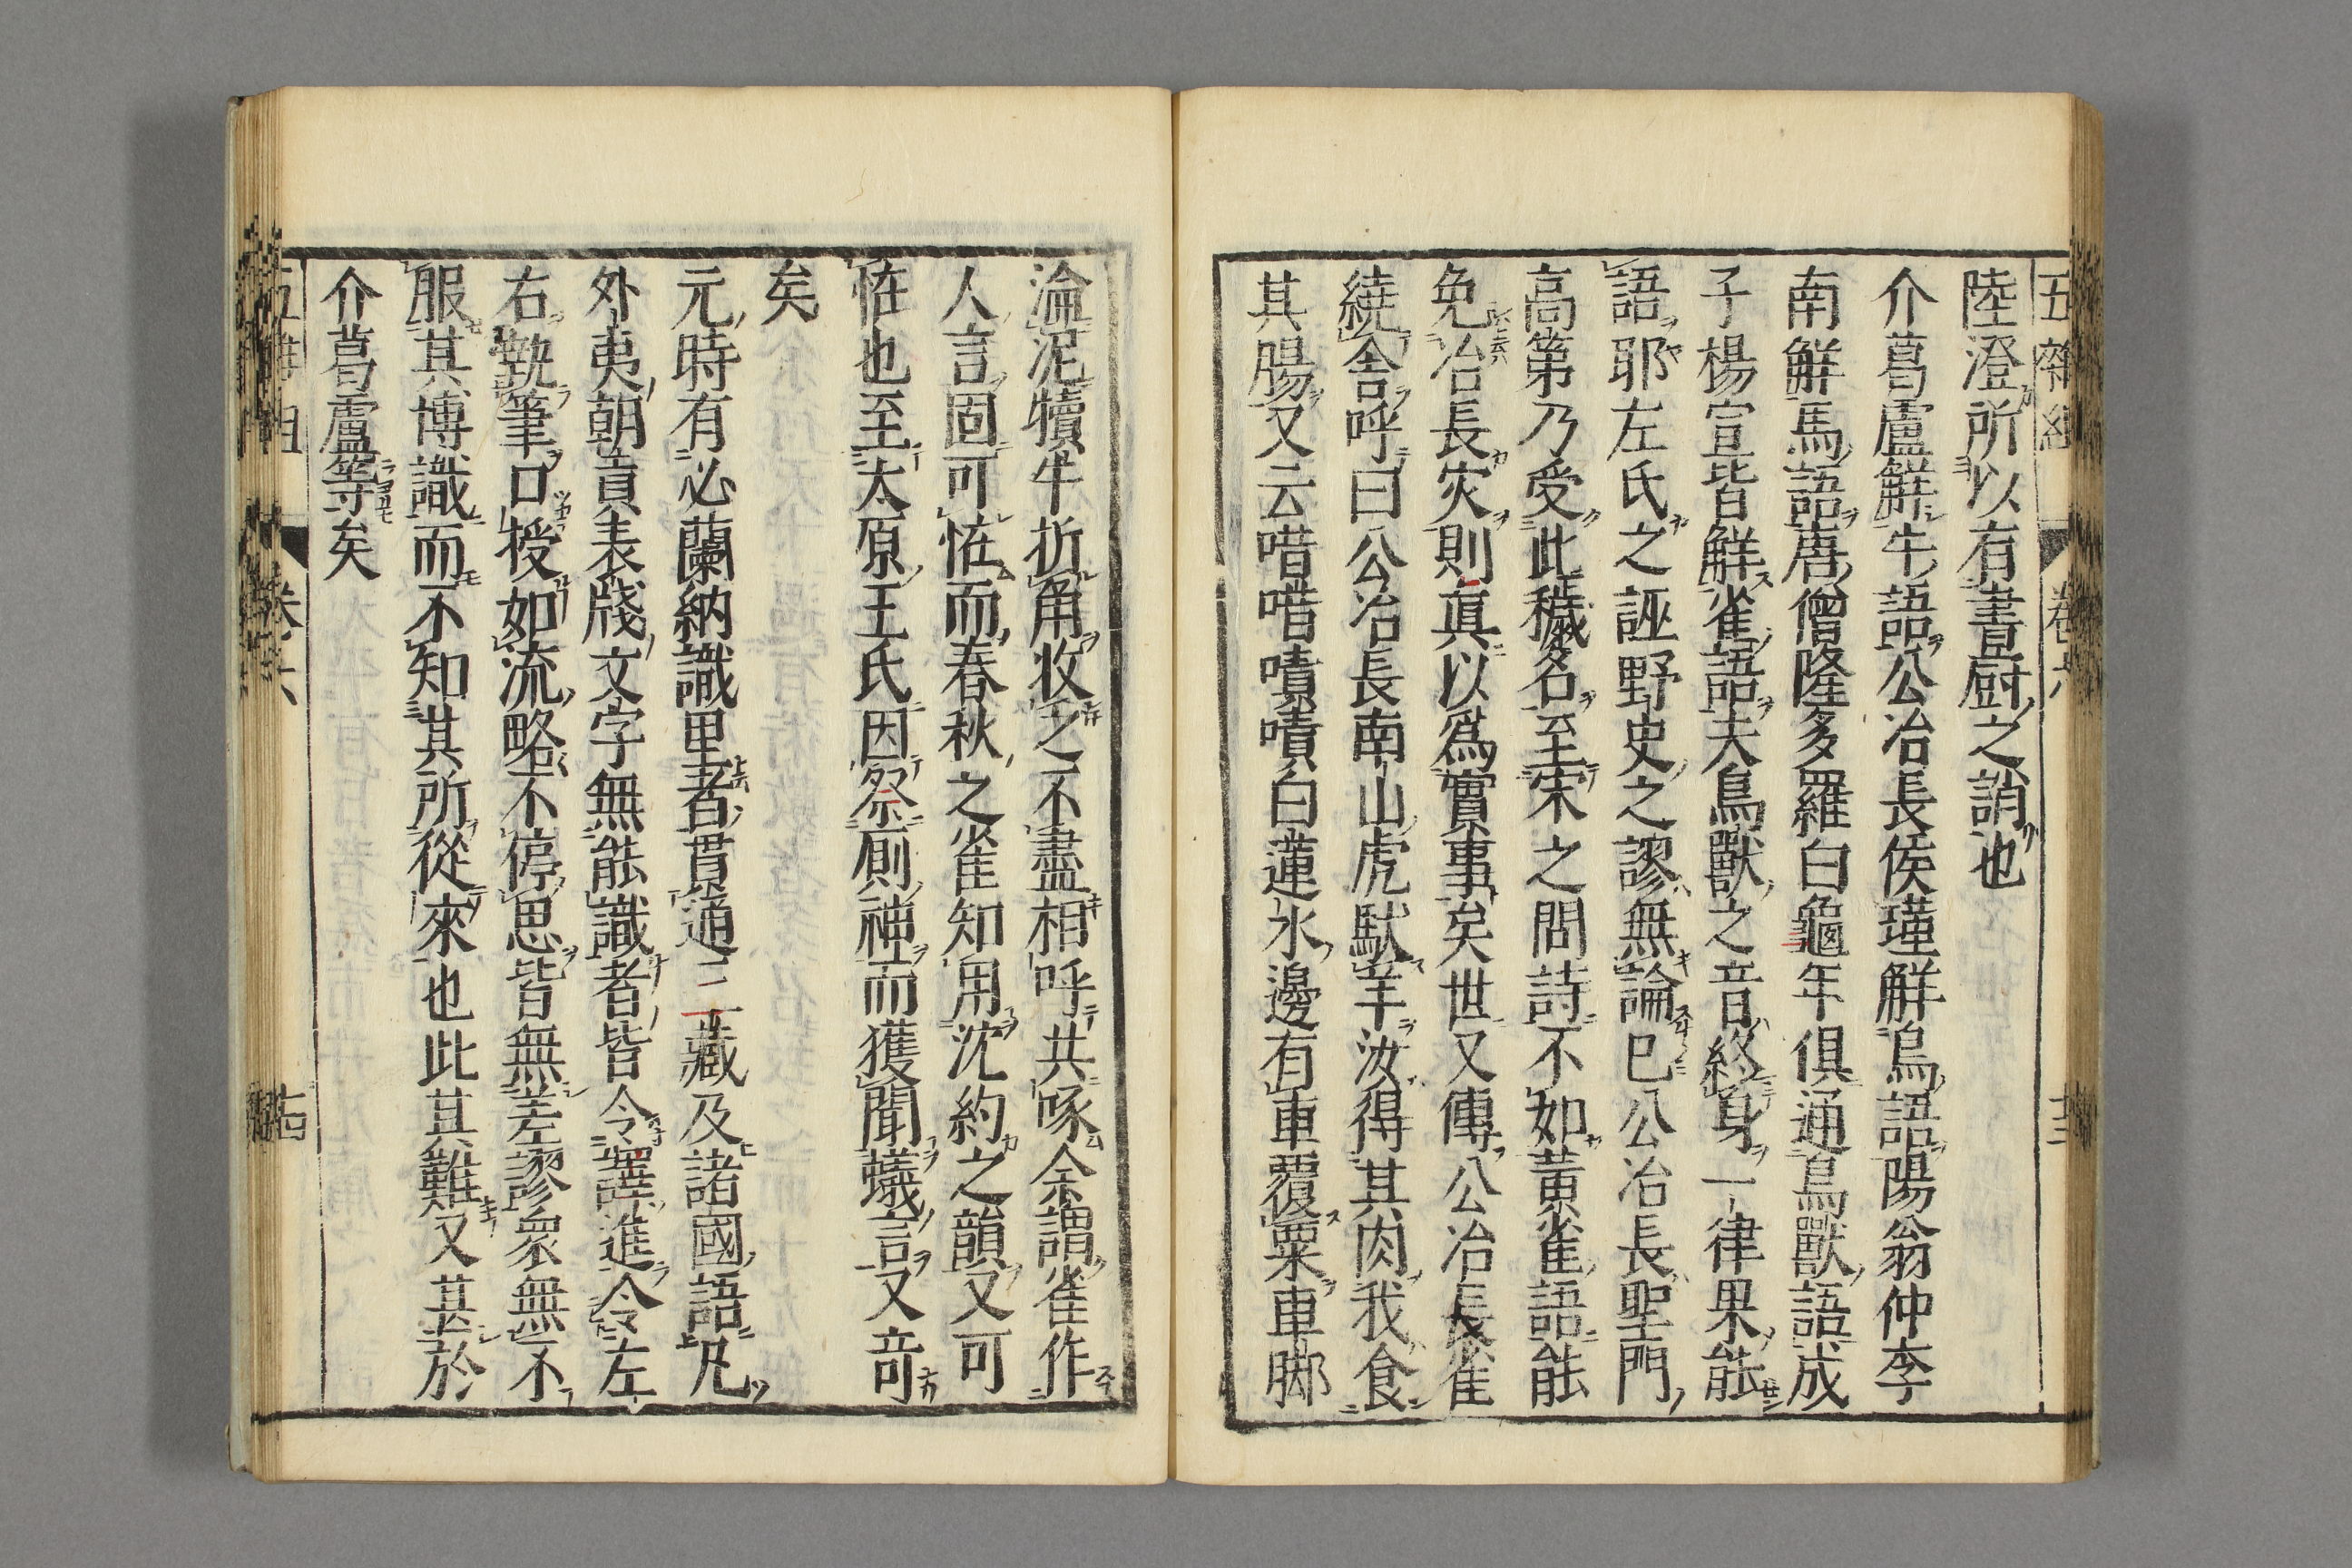 五雜組 卷六 十三
陸澄所以有書厨之誚也
介葛盧解牛語公冶長侯瑾解鳥語陽翁仲李
南解馬語唐僧隆多羅白龜年俱通鳥獸語成
子楊宣皆解雀語夫鳥獸之音終身一律果能
語耶左氏之誣野史之謬無論已公冶長聖門
高第乃受此穢名至宋之問詩不如黃雀語能
免冶長灾則真以爲實事矣世又傳公冶長雀
繞舍呼曰公冶長南山虎馱羊汝得其肉我食
其腸又云唶唶嘖嘖白蓮水邊有車覆粟車脚
淪泥犢牛折角收之不盡相呼共啄余謂雀作
人言固可恠而春秋之雀知用沈約之韻又可
恠也至太原王氏因祭厠神而獲聞蟻言又奇
矣
元時有必蘭納識里者貫通三藏及諸國語凡
外夷朝貢表牋文字無能識者皆令譯進令左
右執筆口授如流略不停思皆無差謬衆無不
服其博識而不知其所從來也此其難又甚於
介葛盧等矣
卷六